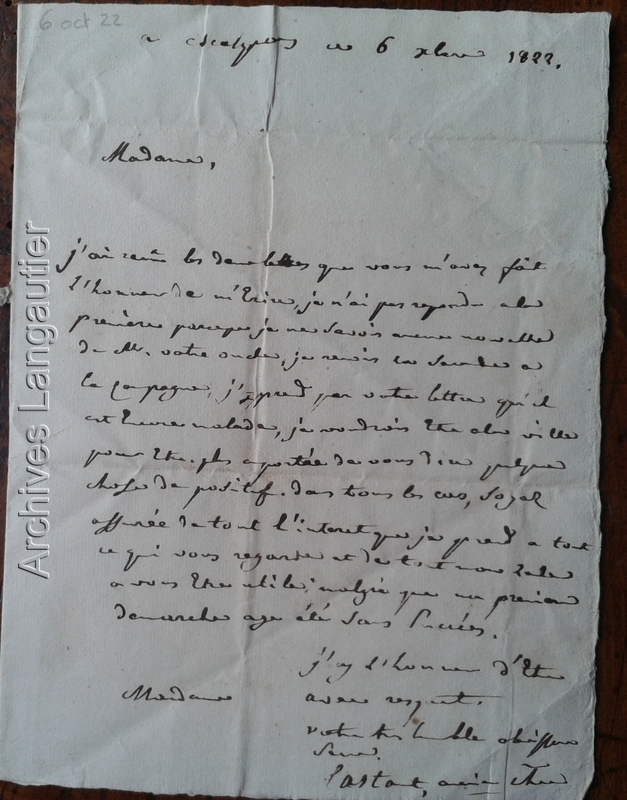 6 oct 22
ce 6 1822.
Madame,
j'ai les deux lettres que vous m'avez fait
l'honneur de m'Ecrire, je n'ai pas repondu a la
premiere parceque je ne savois aucune nouvelle
de M. votre oncle, je reviens a
la Campagne, j'apprend par votre lettre qu'il
est Encore malade, je voudrois Etre a la ville
pour Etre plus a portée de vous dire quelque
chose de positif. dans tous les cas, soyez
assurée de tout l'interet que je prend a tout
ce qui vous regarde et de tout mon zele
a vous Etre utile, malgré que ma premiere
demarche aye été sans succés.
j'ay l'honneur d'Etre
avec respect.
Madame
votre tres humble obeissant
serv.
Archives Langautier